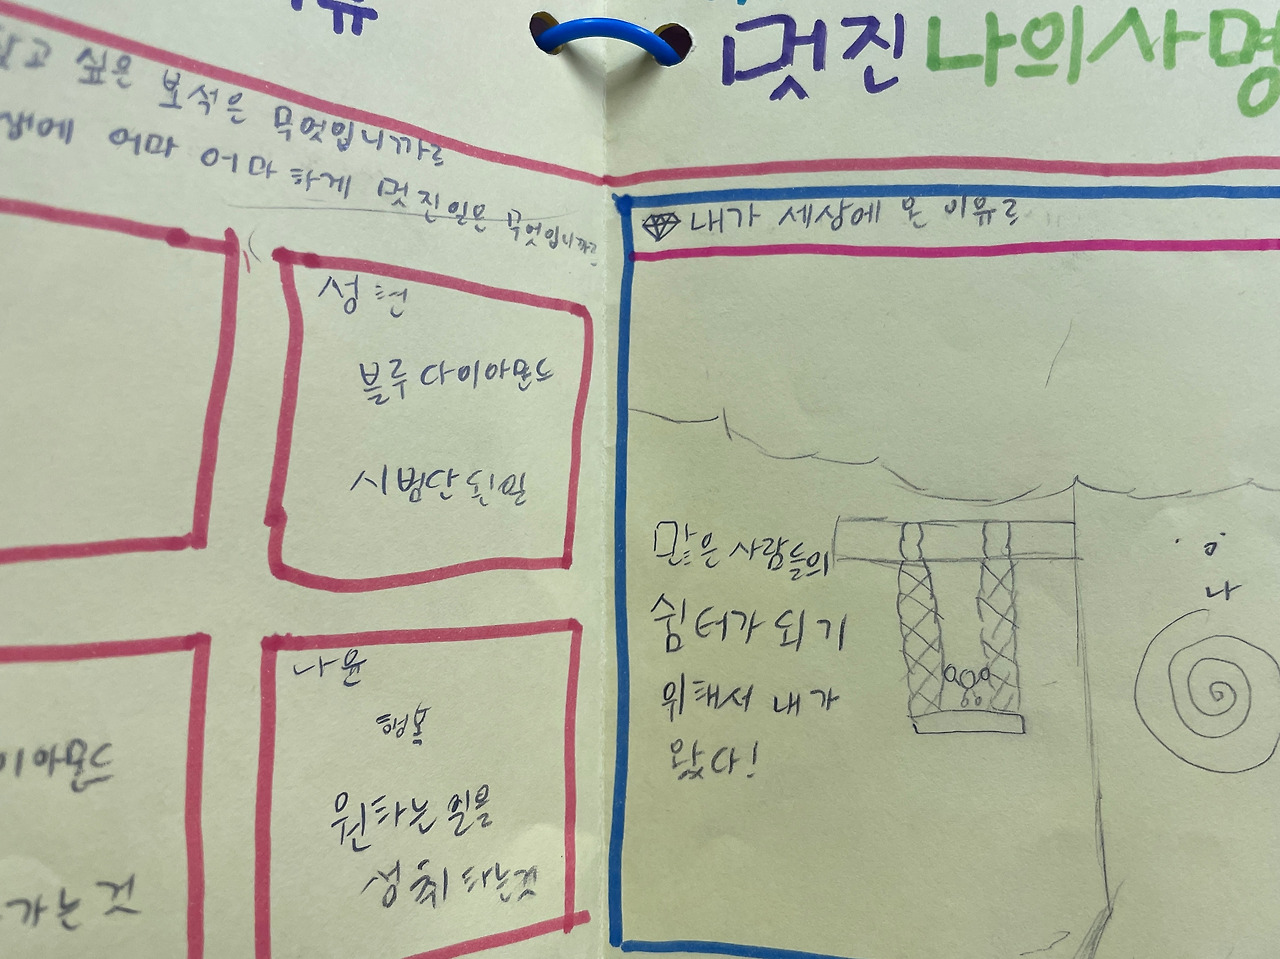 유
닮고 싶은 보석은 무엇입니까?
생애 어마 어마하게 멋진일은 무엇입니까?
성현
블루 다이아몬드
시범단 된일
이아몬드
가는 것
나윤
행복
원하는 일을
성취하는것
멋진 나의 사명
내가 세상에 온 이유?
많은 사람들의
쉼터가 되기
위해서 내가
왔다!
나